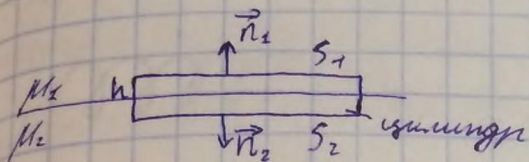 n⃗₁
S₁
μ₁ h
μ₂ n⃗₂ S₂ цилиндр